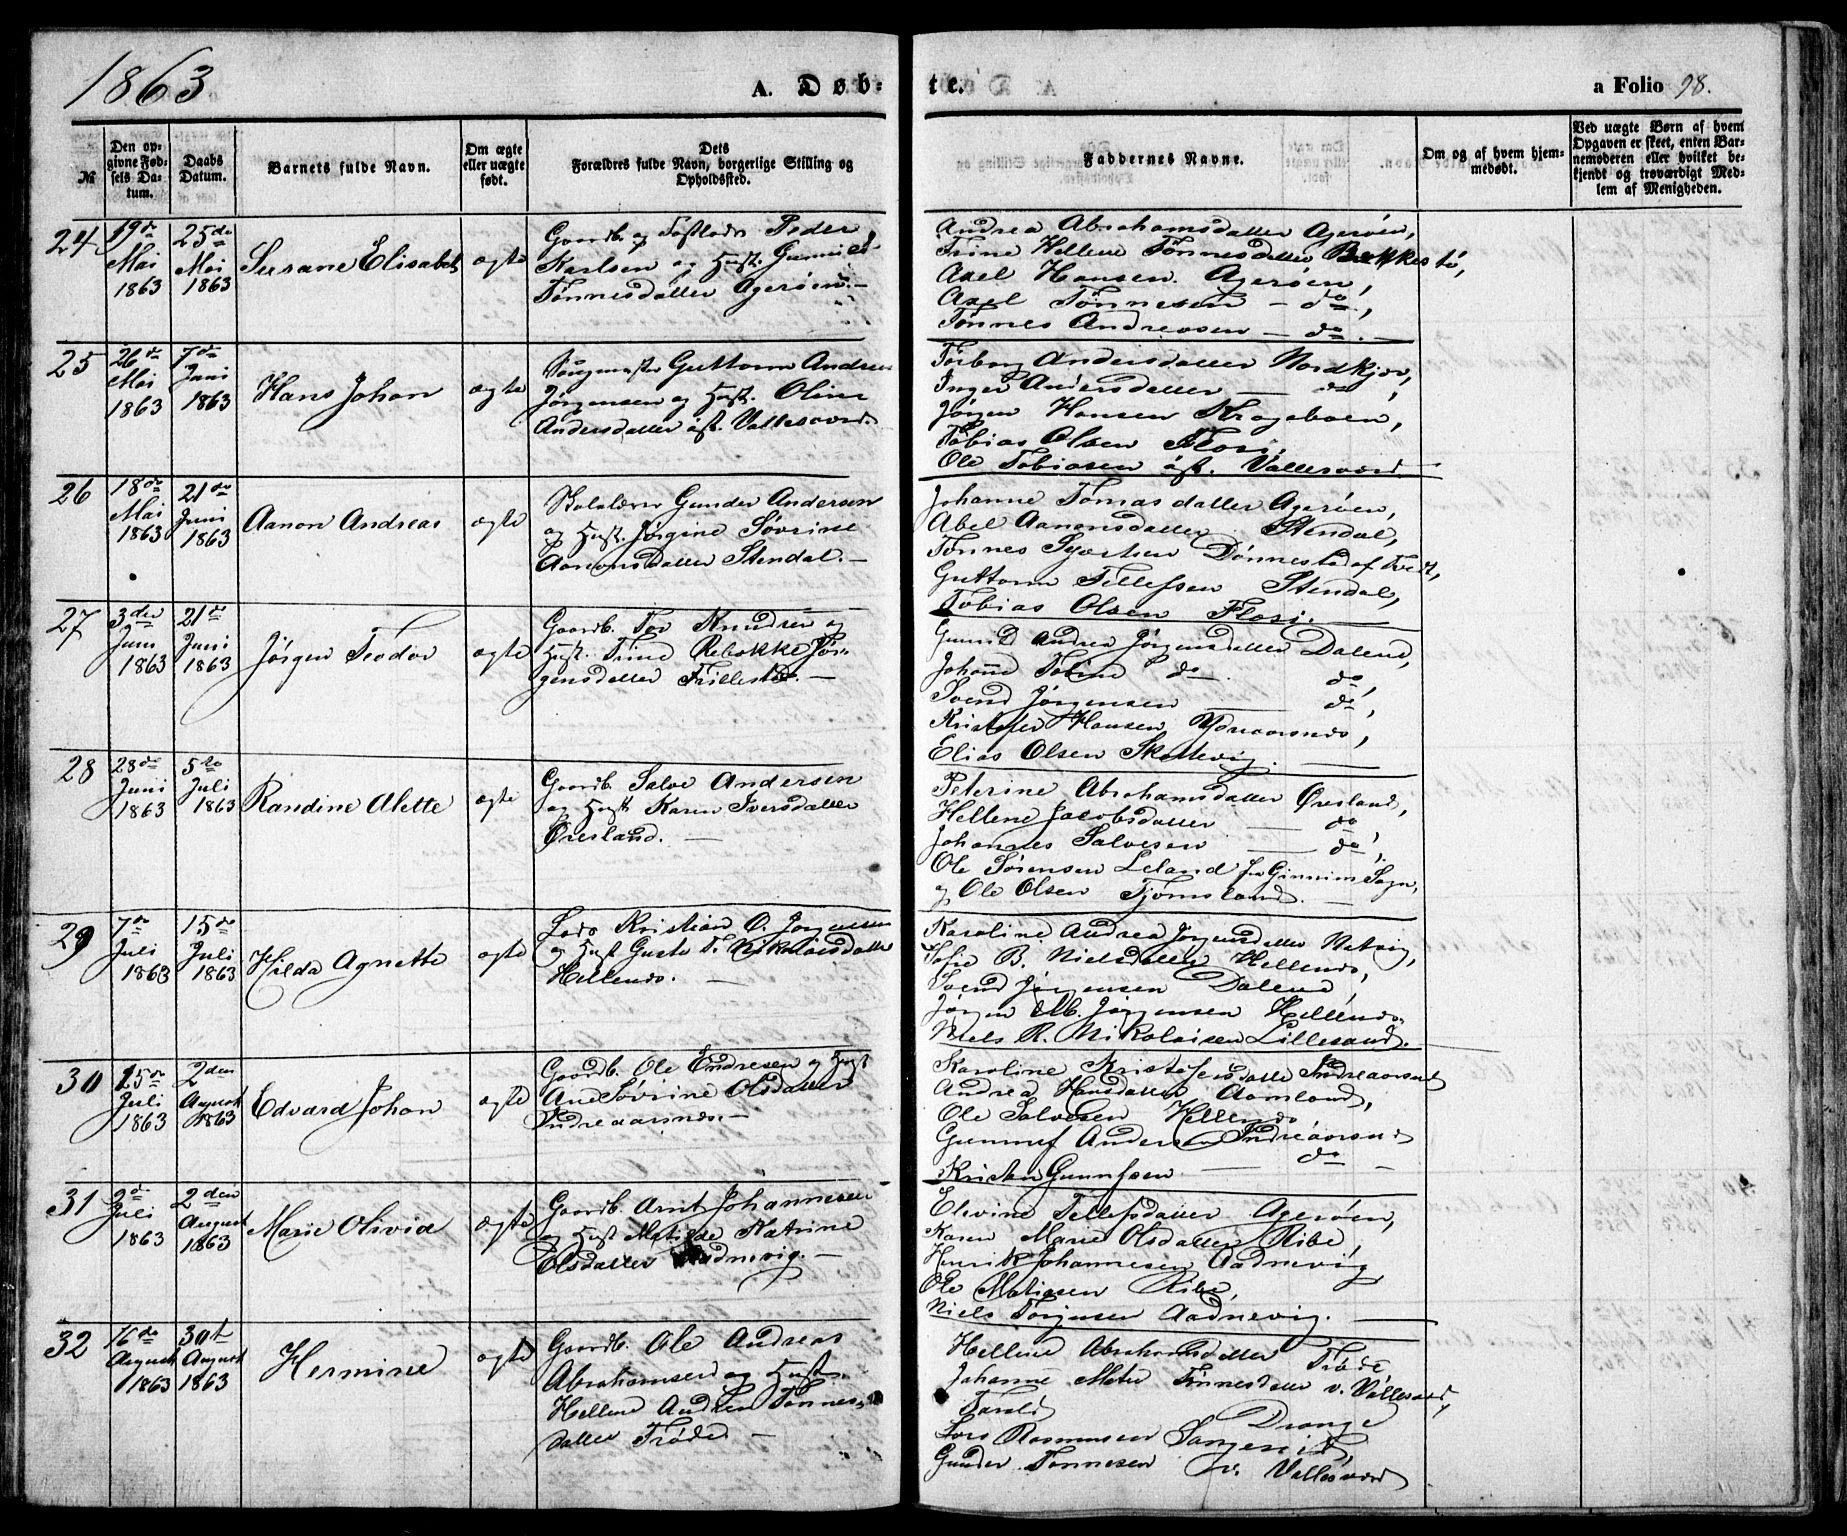 1863
A. Døb-
te.
a Folio 98.
№
Den opgivne Fødsels Datum.
Daabs Datum.
Barnets fulde Navn.
Om ægte eller uægte født.
Dets Forældres fulde Navn, borgerlige Stilling og Opholdssted.
Faddernes Navne.
Om og af hvem hjemmedøbt.
Ved uægte Børn af hvem Opgaven er skeet, enten Barnemoderen eller hvilket bekjendt og troværdigt Medlem af Menigheden.
24
19de Mai 1863
25de Mai 1863
Susane Elisabet
ægte
Gaardb. og Peder
Karlsen og Hust. Gunnild
Tønnesdatter Agerøen.
Andrea Abrahamsdatter Agerøen,
Trine Hellene Tønnesdatter Bækkestø,
Axel Hansen Agerøen,
Axel Tønnesen — do,
Tønnes Andreasen — do.
25
26de Mai 1863
7de Juni 1863
Hans Johan
ægte
Guttorm Andreas
Jørgensen og Hust. Oline
Andersdatter øst. Vallesværd.
Torborg Andersdatter Nordkjær,
Inger Andersdatter — do,
Jørgen Hansen Krageboen,
Tobias Olsen Flosi,
Ole Tobiasen øst. Vallesværd
26
18de Mai 1863
21de Juni 1863
Aanon Andreas
ægte
Skolelærer Gunder Andersen
og Hust. Jørgine Søvrine
Aanonsdatter Stendal.
Johanne Tomasdatter Agerøen,
Abel Aanonsdatter Stendal,
Tønnes Dønnestad af Tvedt,
Guttorm Tellefsen Stendal,
Tobias Olsen Flosi.
27
3den Juni 1863
21de Juni 1863
Jørgen Teodor
ægte
Gaardb. Tov Knudsen og
Hust. Trine Rebekke Jør-
gensdatter Trillestø.
Gunild Andrea Jørgensdatter Dalene,
Johanne Tobine do — do,
Svend Jørgensen — do,
Kristofer Hansen
Elias Olsen Skottevig.
28
28de Juni 1863
5te Juli 1863
Randine Alette
ægte
Gaardb. Salve Andersen
og Hust. Karen Iversdatter
Øresland.
Peterine Abrahamsdatter Øresland,
Hellene Jacobsdatter — do
Johannes Salvesen — do,
Ole Sørensen Leland fra Ginnim Sogn,
og Ole Olsen Tjømsland.
29
7de Juli 1863
15de Juli 1863
Hilda Agnette
ægte
Lods Kristian O. Jørgensen
og Hust Gusta T. Nikolaisdatter
Hellenes.
Karoline Andrea Jørgensdatter Natvig,
Sofie B. Nielsdatter Hellenes,
Svend Jørgensen Dalene,
Jørgen M. Jørgensen Hellenes.
Niels R. Nikolaisen Lillesand.
30
15de Juli 1863
2den August 1863
Edvard Johan
ægte
Gaardb. Ole Endresen og Hust
Ane Søvrine Olsdatter
Indreaarsnes.
Karoline Kristofersdatter Indreaarsnes
Andrea Hansdatter Aamland,
Ole Salvesen Hellenes
Gunnuf Andersen Indreaarsnes
Kristen Gunnufsen — do
31
2de Juli 1863
2den August 1863
Marie Olivia
ægte
Gaardb. Arnt Johannesen
og Hust Matilde Katrine
Olsdatter Aadnevig.
Elevine Tellefsdatter Agerøen,
Karen Marie Olsdatter Ribe,
Henrik Johannesen Aadnevig
Ole Matiasen Ribe,
Niels Torjusen Aadnevig.
32
16de August 1863
30t August 1863
Hermine
ægte
Gaardb. Ole Andreas
Abrahamsen og Hust.
Hellene Andrea Tønnes-
datter Trøde
Hellene Abrahamsdatter Trøde
Johanne Mater Tønnesdatter v. Vallesværd,
Tarald Drange
Lars Rasmussen
Gunder Tønnesen v. Vallesværd